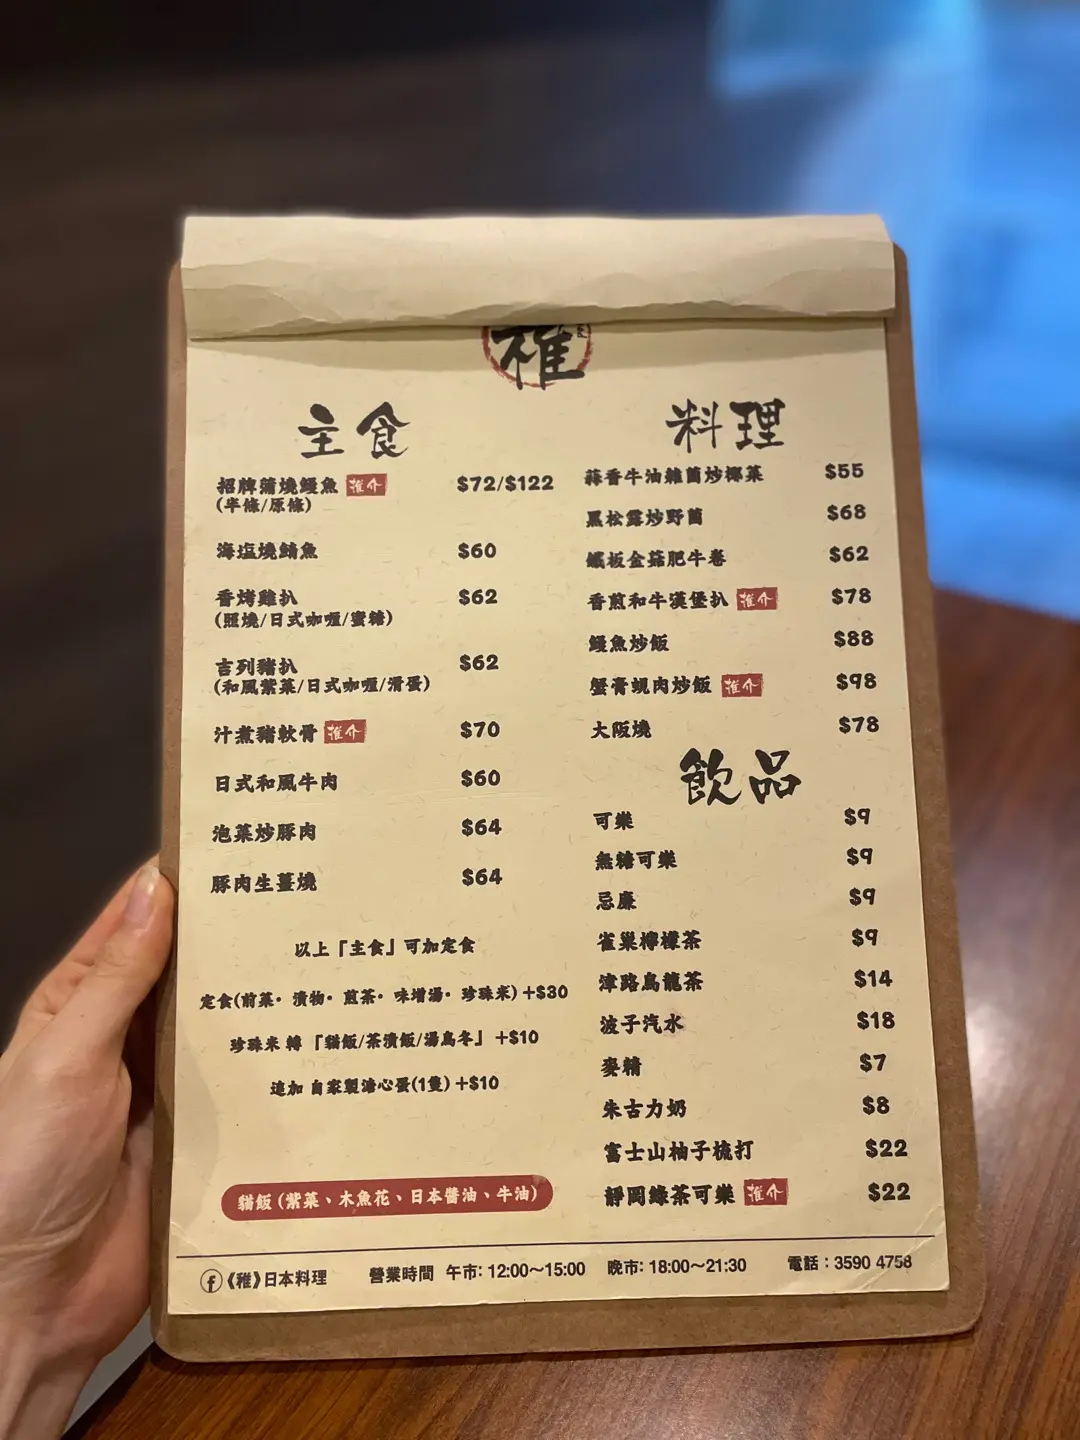 稚
主食
招牌蒲燒鰻魚 推介 $72/$122
(半條/原條)
海塩燒鯖魚 $60
香烤雞扒 $62
(照燒/日式咖喱/蜜糖)
吉列豬扒 $62
(和風紫菜/日式咖喱/滑蛋)
汁煮豬軟骨 推介 $70
日式和風牛肉 $60
泡菜炒豚肉 $64
豚肉生薑燒 $64
以上「主食」可加定食
定食(前菜・漬物・煎茶・味增湯・珍珠米) +$30
珍珠米 轉「貓飯/茶漬飯/湯烏冬」 +$10
追加 自家製溏心蛋(1隻) +$10
貓飯 (紫菜、木魚花、日本醬油、牛油)
料理
蒜香牛油雜菌炒椰菜 $55
黑松露炒野菌 $68
鐵板金菇肥牛卷 $62
香煎和牛漢堡扒 推介 $78
鰻魚炒飯 $88
蟹膏蜆肉炒飯 推介 $98
大阪燒 $78
飲品
可樂 $9
無糖可樂 $9
忌廉 $9
雀巢檸檬茶 $9
津路烏龍茶 $14
波子汽水 $18
麥精 $7
朱古力奶 $8
富士山柚子梳打 $22
靜岡綠茶可樂 推介 $22
《稚》日本料理 營業時間 午市: 12:00~15:00 晚市: 18:00~21:30 電話：3590 4758